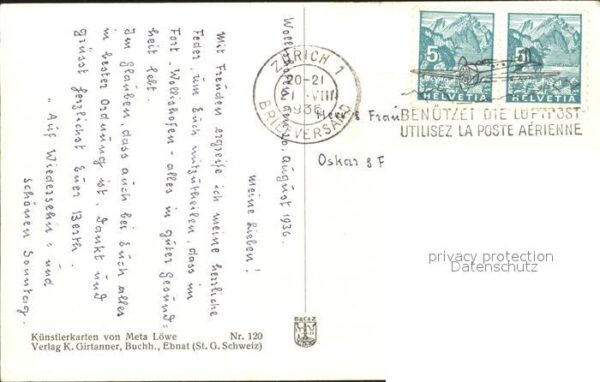 Wollishofen, 20. August 1936.
Meine Lieben!
Mit Freuden ergreife ich meine herrliche
Feder, um Euch mitzutheilen, dass im
Fort „Wollishofen" alles in guter Gesund-
heit lebt.
Im glauben, dass auch bei Euch alles
in bester Ordnung ist, dankt und
grüsst herzlichst Euer Berth.
„Auf Wiedersehn" und
schönen Sonntag.
ZÜRICH 1
20-21
21 VIII
1936
BRIEFVERSAND
5
HELVETIA
5
HELVETIA
BENÜTZET DIE LUFTPOST-
UTILISEZ LA POSTE AÉRIENNE
Herr & Frau
Oskar & F
privacy protection
Datenschutz
Künstlerkarten von Meta Löwe Nr. 120
Verlag K. Girtanner, Buchh., Ebnat (St. G. Schweiz)